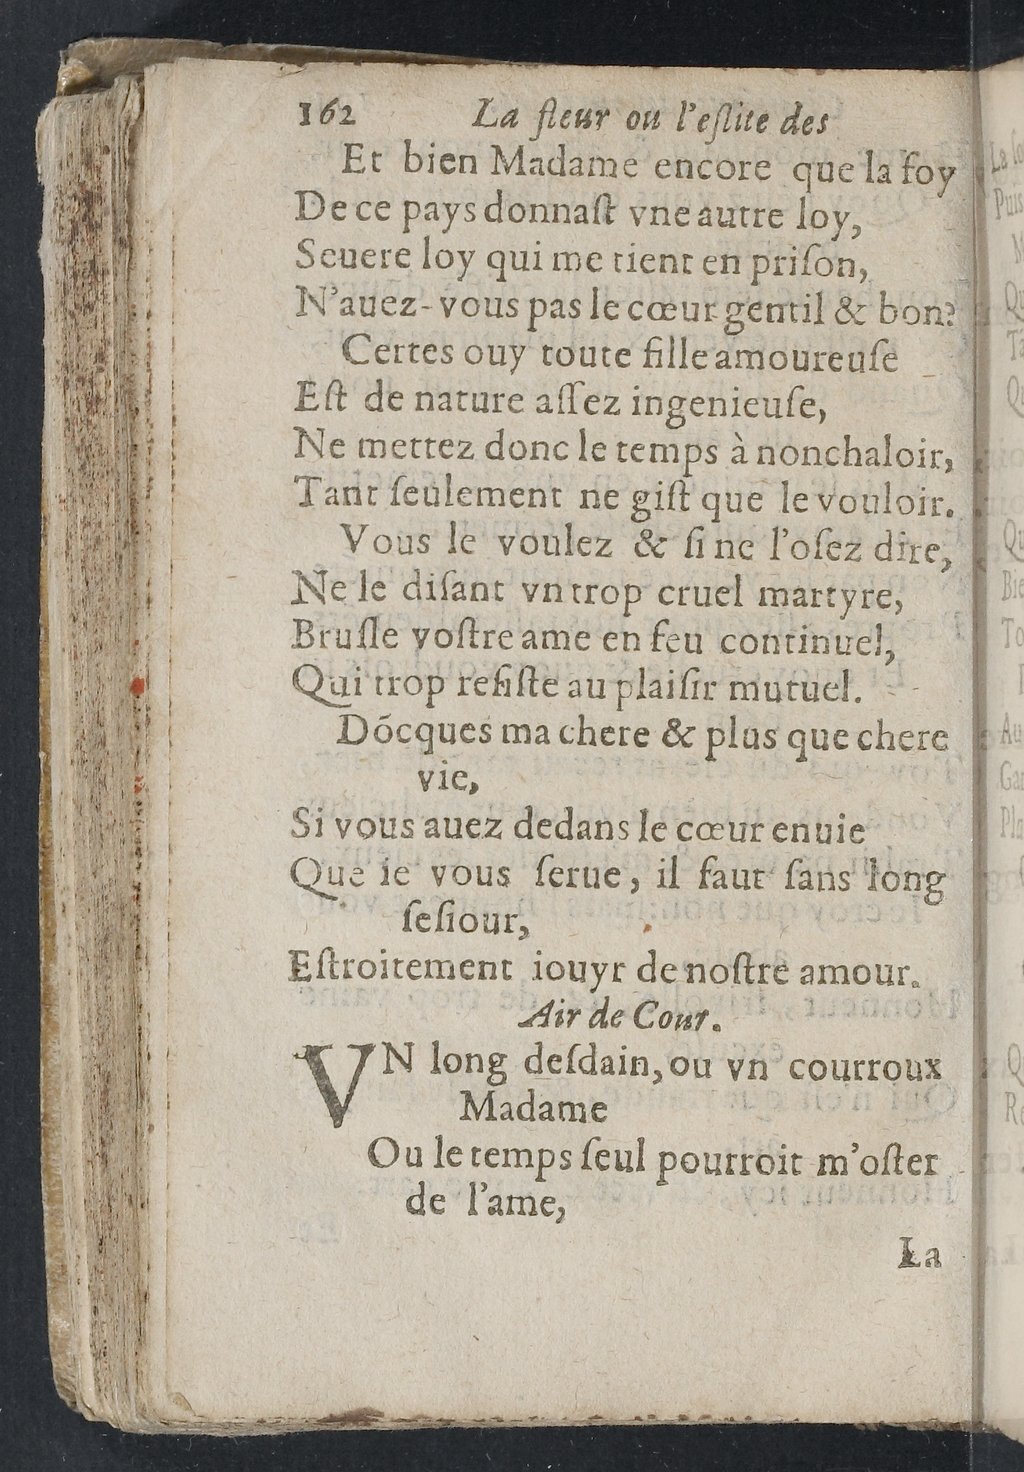 162 La fleur ou l'eſlite des
Et bien Madame encore que la foy
De ce pays donnaſt vne autre loy,
Seuere loy qui me tient en priſon,
N'auez-vous pas le cœur gentil & bon?
Certes ouy toute fille amoureuſe
Eſt de nature aſſez ingenieuſe,
Ne mettez donc le temps à nonchaloir,
Tant ſeulement ne giſt que le vouloir.
Vous le voulez & ſi ne l'oſez dire,
Ne le diſant vn trop cruel martyre,
Bruſle voſtre ame en feu continuel,
Qui trop reſiſte au plaiſir mutuel.
Dōcques ma chere & plus que chere
vie,
Si vous auez dedans le cœur enuie
Que ie vous ſerue, il faut ſans long
ſeſiour,
Eſtroitement iouyr de noſtre amour.
Air de Cour.
VN long deſdain, ou vn courroux
Madame
Ou le temps ſeul pourroit m'oſter
de l'ame,
La